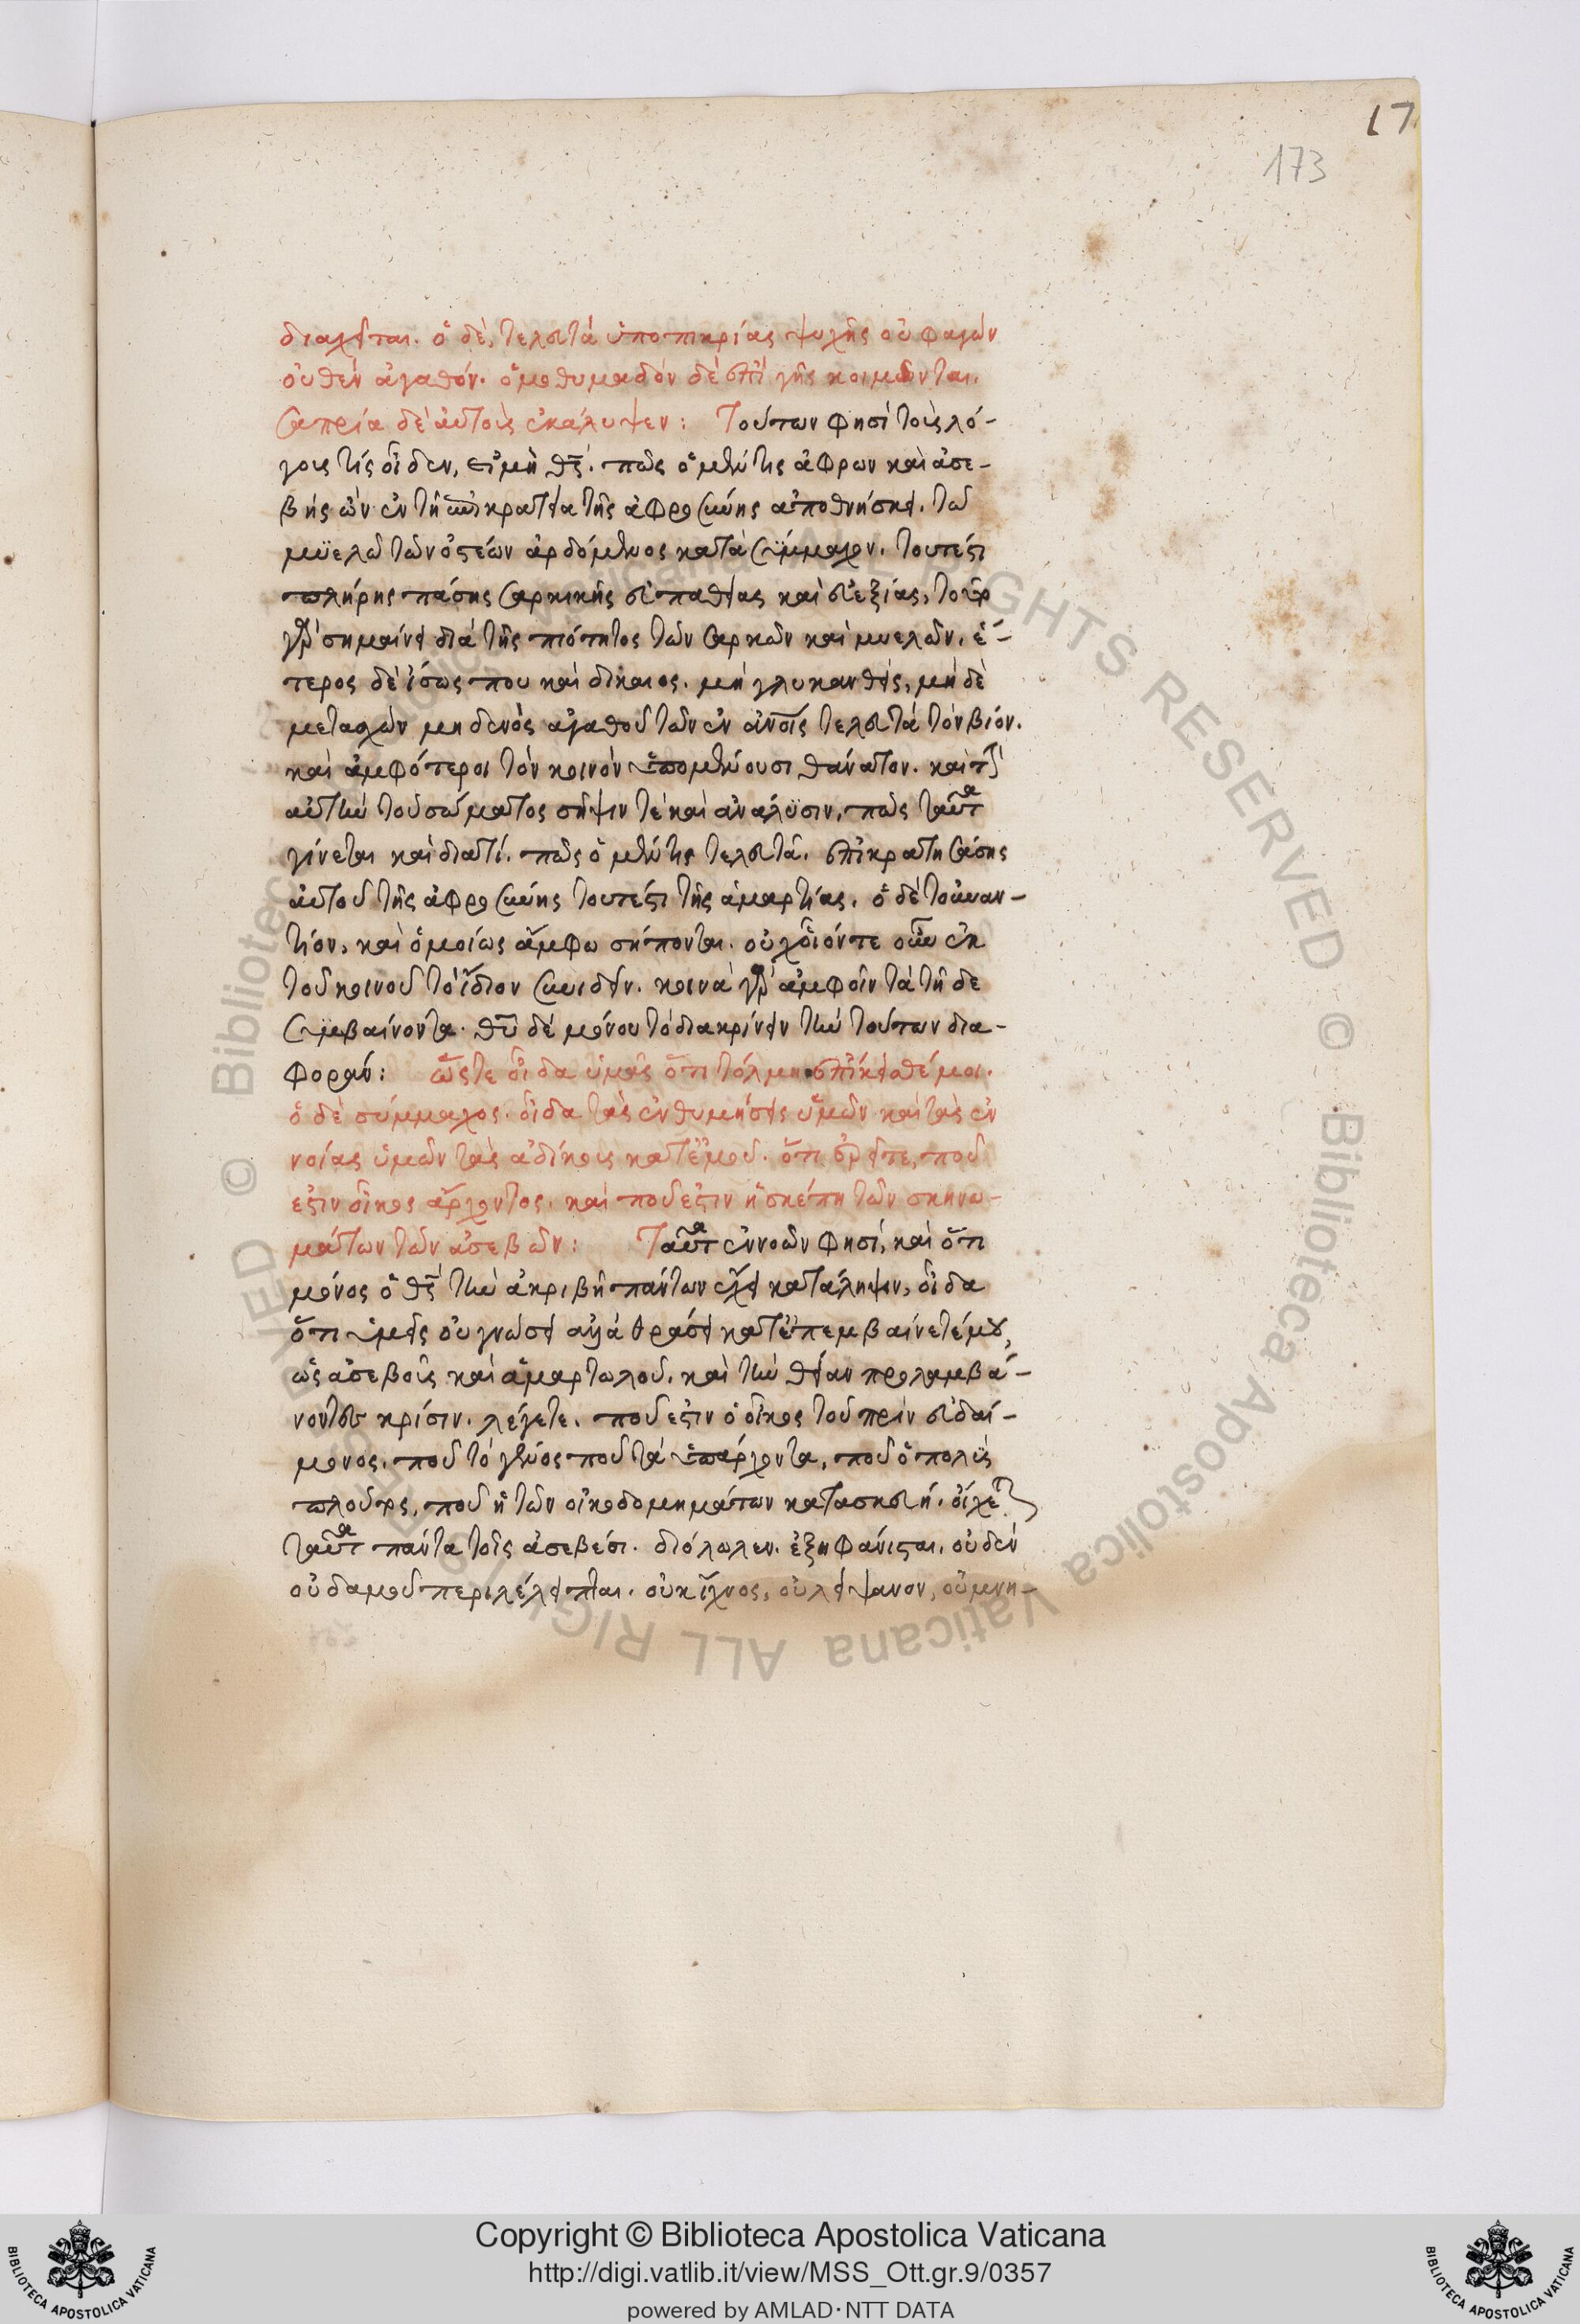 17
173
διαχεῖται. ὁ δὲ, τελευτᾷ ὑπὸ πικρίας ψυχῆς οὐ φαγὼν
οὐθὲν ἀγαθόν. ὁμοθυμαδὸν δὲ ἐπὶ γῆς κοιμῶνται.
σαπρία δὲ αὐτοὺς ἐκάλυψεν: Τούτων φησὶ τοὺς λό-
γους τίς οἶδεν, εἰ μὴ θς. πῶς ὁ μὲν τις ἄφρων καὶ ἀσε-
βὴς ὢν ἐν τῇ ἐπικρατεία τῆς ἀφροσύνης ἀποθνήσκει. τῶ
μυελῶ τῶν ὀστέων ἀρδόμενος κατὰ σύμμαχον. τουτέστι
πλήρης πάσης σαρκικῆς εὐπαθείας καὶ εὐεξίας, τοῦτο
γὰρ σημαίνει διὰ τῆς πιότητος τῶν σαρκῶν καὶ μυελῶν. ἕ-
τερος δὲ ἴσως που καὶ δίκαιος. μὴ γλυκανθεὶς, μὴ δὲ
μετασχὼν μηδενὸς ἀγαθοῦ τῶν ἐν ἀνοις τελευτᾷ τὸν βίον.
καὶ ἀμφότεροι τὸν κοινὸν ὑπομένουσι θάνατον. καὶ τὴν
αὐτὴν τοῦ σώματος σῆψιν τὲ καὶ ἀνάλυσιν, πῶς ταῦτα
γίνεται καὶ διατί. πῶς ὁ μέν τις τελευτᾷ. ἐπικρατησάσης
αὐτοῦ τῆς ἀφροσύνης τουτέστι τῆς ἁμαρτίας. ὁ δὲ τοὐναν-
τίον, καὶ ὁμοίως ἄμφω σήπονται. οὐχ οἷόντε οὖν ἐκ
τοῦ κοινοῦ τὸ ἴδιον συνιδεῖν. κοινὰ γὰρ ἀμφοῖν τὰ τῇδε
συμβαίνοντα. θῦ δὲ μόνου τὸ διακρίνειν τὴν τούτων δια-
φοράν: ὥστε οἶδα ὑμᾶς ὅτι τόλμη ἐπίκεισθέ μοι.
ὁ δὲ σύμμαχος. οἶδα τὰς ἐνθυμήσεις ὑμῶν καὶ τὰς ἐν
νοίας ὑμῶν τὰς ἀδίκους κατ' ἐμοῦ. ὅτι ἐρεῖτε, ποῦ
ἐστιν οἶκος ἄρχοντος. καὶ ποῦ ἐστιν ἡ σκέπη τῶν σκηνω-
μάτων τῶν ἀσεβῶν: Ταῦτα ἐννοῶν φησί, καὶ ὅτι
μόνος ὁ θς τὴν ἀκριβῆ πάντων ἔχει κατάληψιν, οἶδα
ὅτι ὑμεῖς οὐ γνώσει ἀλλὰ θράσει κατεπεμβαίνετέ μου,
ὡς ἀσεβοῦς καὶ ἁμαρτωλοῦ. καὶ τὴν θείαν προλαμβά-
νοντες κρίσιν. λέγετε. ποῦ ἐστιν ὁ οἶκος τοῦ πρὶν εὐδαί-
μονος. ποῦ τὸ γένος ποῦ τὰ ὑπάρχοντα, ποῦ ὁ πολὺς
πλοῦτος, ποῦ ἡ τῶν οἰκοδομημάτων κατασκευή. οἴχεται
ταῦτα πάντα τοῖς ἀσεβέσι. διόλωλεν. ἐξηφάνισται. οὐδὲν
οὐδαμοῦ περιλέλειπται. οὐκ ἴχνος, οὐ λείψανον, οὐ μνη-
Copyright © Biblioteca Apostolica Vaticana
http://digi.vatlib.it/view/MSS_Ott.gr.9/0357
powered by AMLAD · NTT DATA